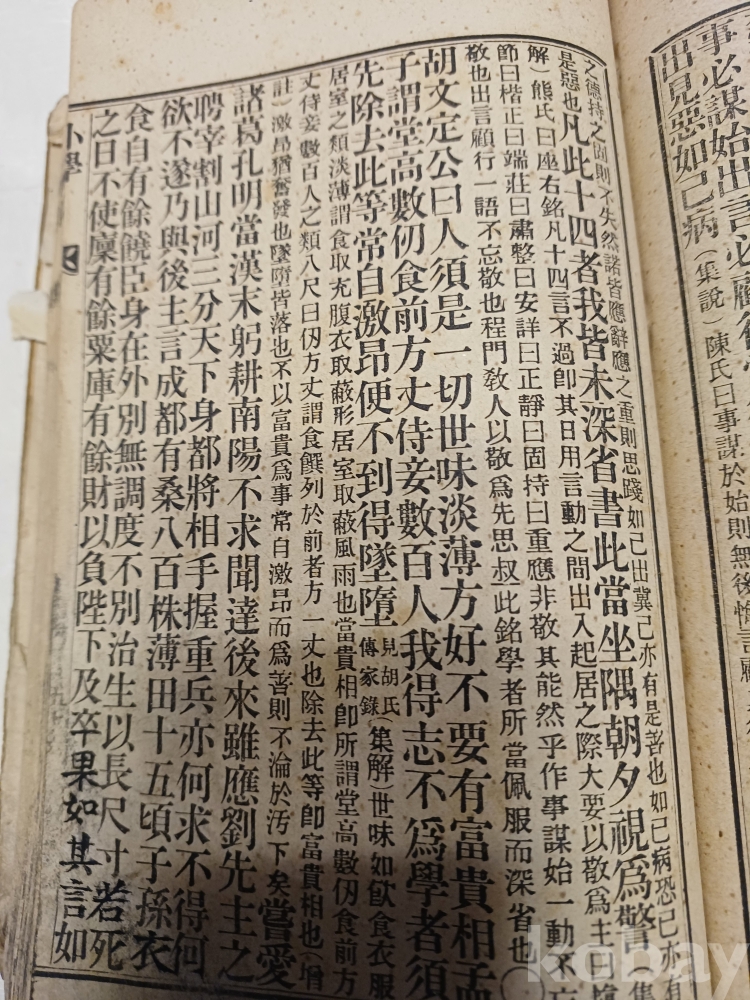 事必謀始出言必顧
出見惡如己病（集說）陳氏曰事謀於始則無後悔言顧
之德持之固則不失然諾皆應辭應之重則思踐如己出冀己亦有是善也如己病恐己亦有
是惡也凡此十四者我皆未深省書此當坐隅朝夕視爲警（集
解）熊氏曰座右銘凡十四言不過卽其日用言動之間出入起居之際大要以敬爲主曰
節曰楷正曰端莊曰肅整曰安詳曰正靜曰固持曰重應非敬其能然乎作事謀始一動不忘
敬也出言顧行一語不忘敬也程門敎人以敬爲先思叔此銘學者所當佩服而深省也
胡文定公曰人須是一切世味淡薄方好不要有富貴相孟
子謂堂高數仞食前方丈侍妾數百人我得志不爲學者須
先除去此等常自激昂便不到得墜墮見胡氏傳家錄（集解）世味如飮食衣服
居室之類淡薄謂食取充腹衣取蔽形居室取蔽風雨也富貴相卽所謂堂高數仞食前方
丈侍妾數百人之類八尺曰仞方丈謂食饌列於前者方一丈也除去此等卽富貴相也（增
註）激昂猶奮發也墜墮皆落也不以富貴爲事常自激昂而爲善則不淪於汚下矣嘗愛
諸葛孔明當漢末躬耕南陽不求聞達後來雖應劉先主之
聘宰割山河三分天下身都將相手握重兵亦何求不得何
欲不遂乃與後主言成都有桑八百株薄田十五頃子孫衣
食自有餘饒臣身在外別無調度不別治生以長尺寸若死
之日不使廩有餘粟庫有餘財以負陛下及卒果如其言如
小學
kobay